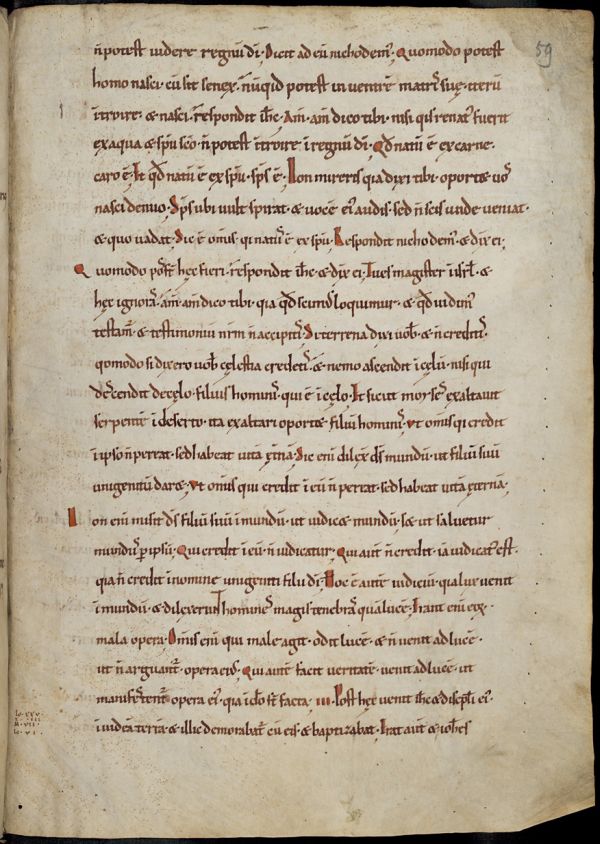 59
n̄ potest uidere regnū dī. Dicit ad eū nichodem᷒. Quomodo potest
homo nasci cū sit senex. nūqid potest in uentrē matris suę iterū
ītroire & nasci. respondit ihc. Am̄ am̄ dico tibi. nisi qis renat᷒ fuerit
ex aqua & spū sc̄o n̄ potest ītroire ī regnū dī. Qd̄ natū ē ex carne.
caro ē. Et qd̄ natū ē ex spū. sps̄ ē. Non mireris qia dixi tibi. oport& uos
nasci denuo. Sps̄ ubi uult spirat. & uocē ei᷒ audis. sed n̄ scis unde ueniat.
& quo uadat. Sic ē omīs qi natū ē ex spū. Respondit nichodem᷒. & dix ei.
Quomodo poss̄t hęc fieri. respondit ihc & dix ei. Tu es magister ī isrl̄. &
hęc ignoras. am̄ am̄ dico tibi. qia qd̄ scim᷒ loquimur. & qd̄ uidim᷒
testam᷒. & testimoniū nr̄m n̄ accipitis. Si terrena dixi uob̄. & n̄ creditis.
qomodo si dixero uob̄ cęlestia credetis. & nemo ascendit ī cęlū. nisi qui
descendit de cęlo. filius hominis. qui ē ī cęlo. Et sicut moyses exaltauit
serpentē ī deserto. ita exaltari oport& filiū hominis. ut omīs qi credit
ī ipso n̄ pereat. sed habeat uitā ęt̄nā. Sic enī dilex ds̄ mundū. ut filiū suū
unigenitū dar&. Vt omīs qui credit ī eū n̄ pereat. sed habeat uitā ęternā.
Non enī misit ds̄ filiū suū ī mundū. ut iudic& mundū. s& ut saluetur
mundus p ipsū. Qui credit ī eū. n̄ iudicatur. Qui aut n̄ credit. iā iudicat᷒ est.
qia n̄ credit ī nomine unigeniti filii dī. Hoc ē autē iudiciū. qia lux uenit
ī mundū. & dilexerunt homines magis tenebras quā lucē. Erant enī eo℞
mala opera. Omīs enī qui male agit. odit lucē. & n̄ uenit ad lucē.
ut n̄ arguant᷒ opera ei᷒. Qui autē facit ueritatē. uenit ad lucē. ut
manifestent᷒ opera ei᷒. qia ī do st̄ facta. III. Post hęc uenit ihc & discipli ei᷒.
ī iudeā terrā. & illic demorabat᷒ cū eis. & baptizabat. Erat aut & iohes